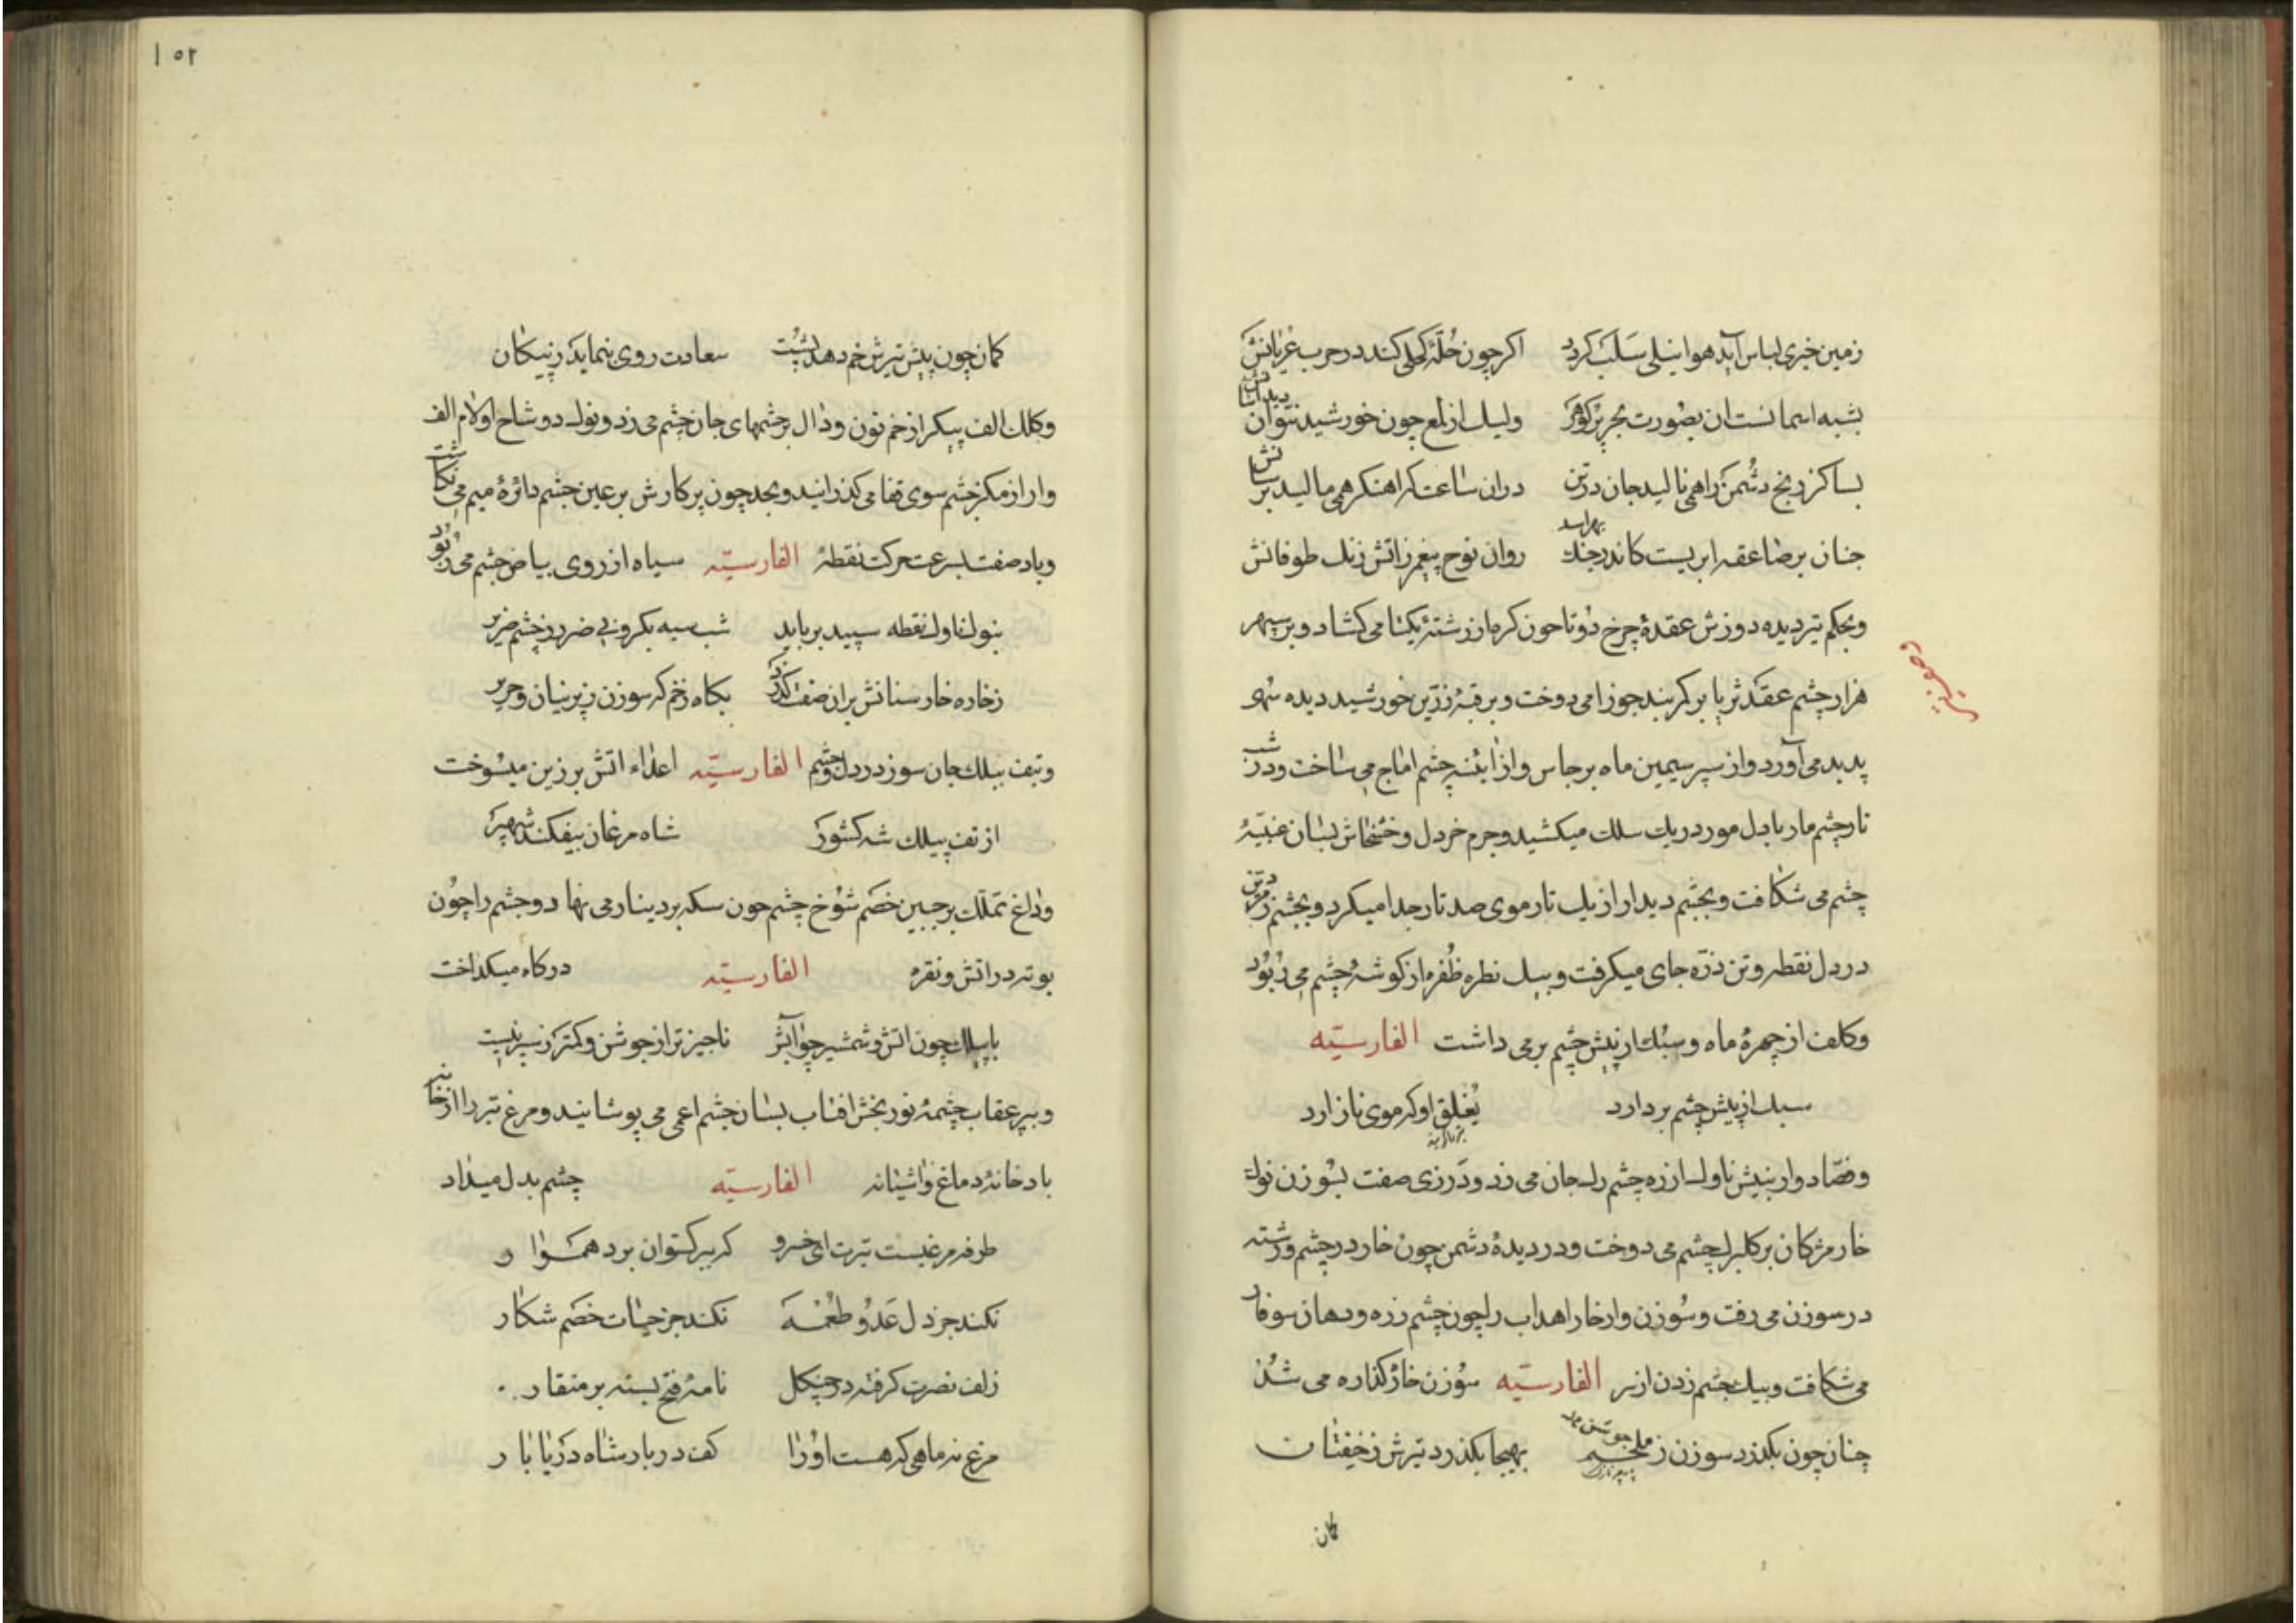 زمین خیری لباس آید هوا نیلی سلب کردد اکر چون حلّهٔ کحلی کند در حرب عریانش
بشبه اسمانست ان بصورت بحر پر کوهر ولیک از لمع چون خورشید نتوان دید اسانش
بسا کز رنج دشمن را همی نالید جان در تن دران ساعت که اهنکر همی مالید برسانش
جنان بر صاعقه ابریست کاندر جنک بهراسد روان نوح پیغمبر ز اتش رنک طوفانش
وبحکم تیر دیده دوزش عقدهٔ چرخ دوتا چون کره از رشتهٔ یکتا می کشاد و بر سپهر
تصویر تیر
هزار چشم عقد ثریا بر کمربند جوزا می دوخت و بر قبهٔ زرّین خورشید دیده سُها
پدید می آورد و از سپر سیمین ماه برجاس و از آینهٔ چشم اماج می ساخت و در شب
تار چشم مار با دل مور در یک سلک میکشید و جرم خردل و خشخاش بسان عنبیّهٔ
چشم می شکافت و بچشم دیدار از یک تار موی صد تار جدا میکرد و بچشم
در دل نقطه و تن ذرّه جای میکرفت و بیک نظره ظُفره از کوشهٔ چشم می ربود
وکلف از چهرهٔ ماه و سبل از پیش چشم بر می داشت الفارسیّه
سبل از پیش چشم بردارد یغلق او که موی نازارد
وفصّاد وار بنیش ناوک از زه چشم رک جان می زد و درزی صفت بسوزن نوک
خار مژکان بر کلبرک چشم می دوخت و در دیدهٔ دشمن چون خار در چشم و رشته
در سوزن می رفت و سوزن وار خار اهداب را چون چشم زره و دهان سوفار
می شکافت و بیک چشم زدن از سر الفارسیّه سوزن خار کذاره می شد
چنان چون بکذرد سوزن ز ملحم بهیجا بکذرد تیرش ز خفتان
کمان
۱۵۲
کمان چون پیش تیرش خم دهد پشت سعادت روی بنماید ز پیکان
وکلک الف پیکر از خم نون و دال بر چشمهای جان چشم می زد و نوک دو شاخ او لام الف
وار از مرکز چشم سوی قفا می کذرانید و بحد چون پرکارش بر عین چشم دائرهٔ میم می نکاشت
وباد صفت بسرعت حرکت نقطهٔ الفارسیّه سیاه از روی بیاض چشم می ربود
بنوک ناوک نقطه سپید برباید شب سیه بکرو بی ضرر ز چشم ضریر
ز خاره خار سنانش بران صفت کذرد بکاه زخم که سوزن ز پرنیان و حریر
وبتف بیلک جان سوز در دل و چشم الفارسیّه اعداء اتش برزین میسوخت
از تف بیلک شه کشور شاه مرغان بیفکند شهپر
وداغ تملّک بر جبین خصم شوخ چشم چون سکه بر دینار می نهاد و چشم را چون
بوته در اتش و نقره الفارسیّه در کاه میکداخت
با بیلک چون اتش و شمشیر چو آبش ناچیز تر از جوشن و کمتر ز سپر نیست
وبپر عقاب چشمهٔ نور بخش افتاب بسان چشم اعمی می پوشانید و مرغ تیر را از خانه
باد خانهٔ دماغ و اشیانه الفارسیّه چشم بدل میداد
طرفه مرغیست تیرت ای خسرو که ببرکستوان برد هموار
نکند جز دل عدو طعمه نکند جز حیات خصم شکار
زلف نصرت کرفته در چنکل نامهٔ فتح بسته بر منقار
مرغ نه ماهی که هست او را کف دربار شاه دریا بار